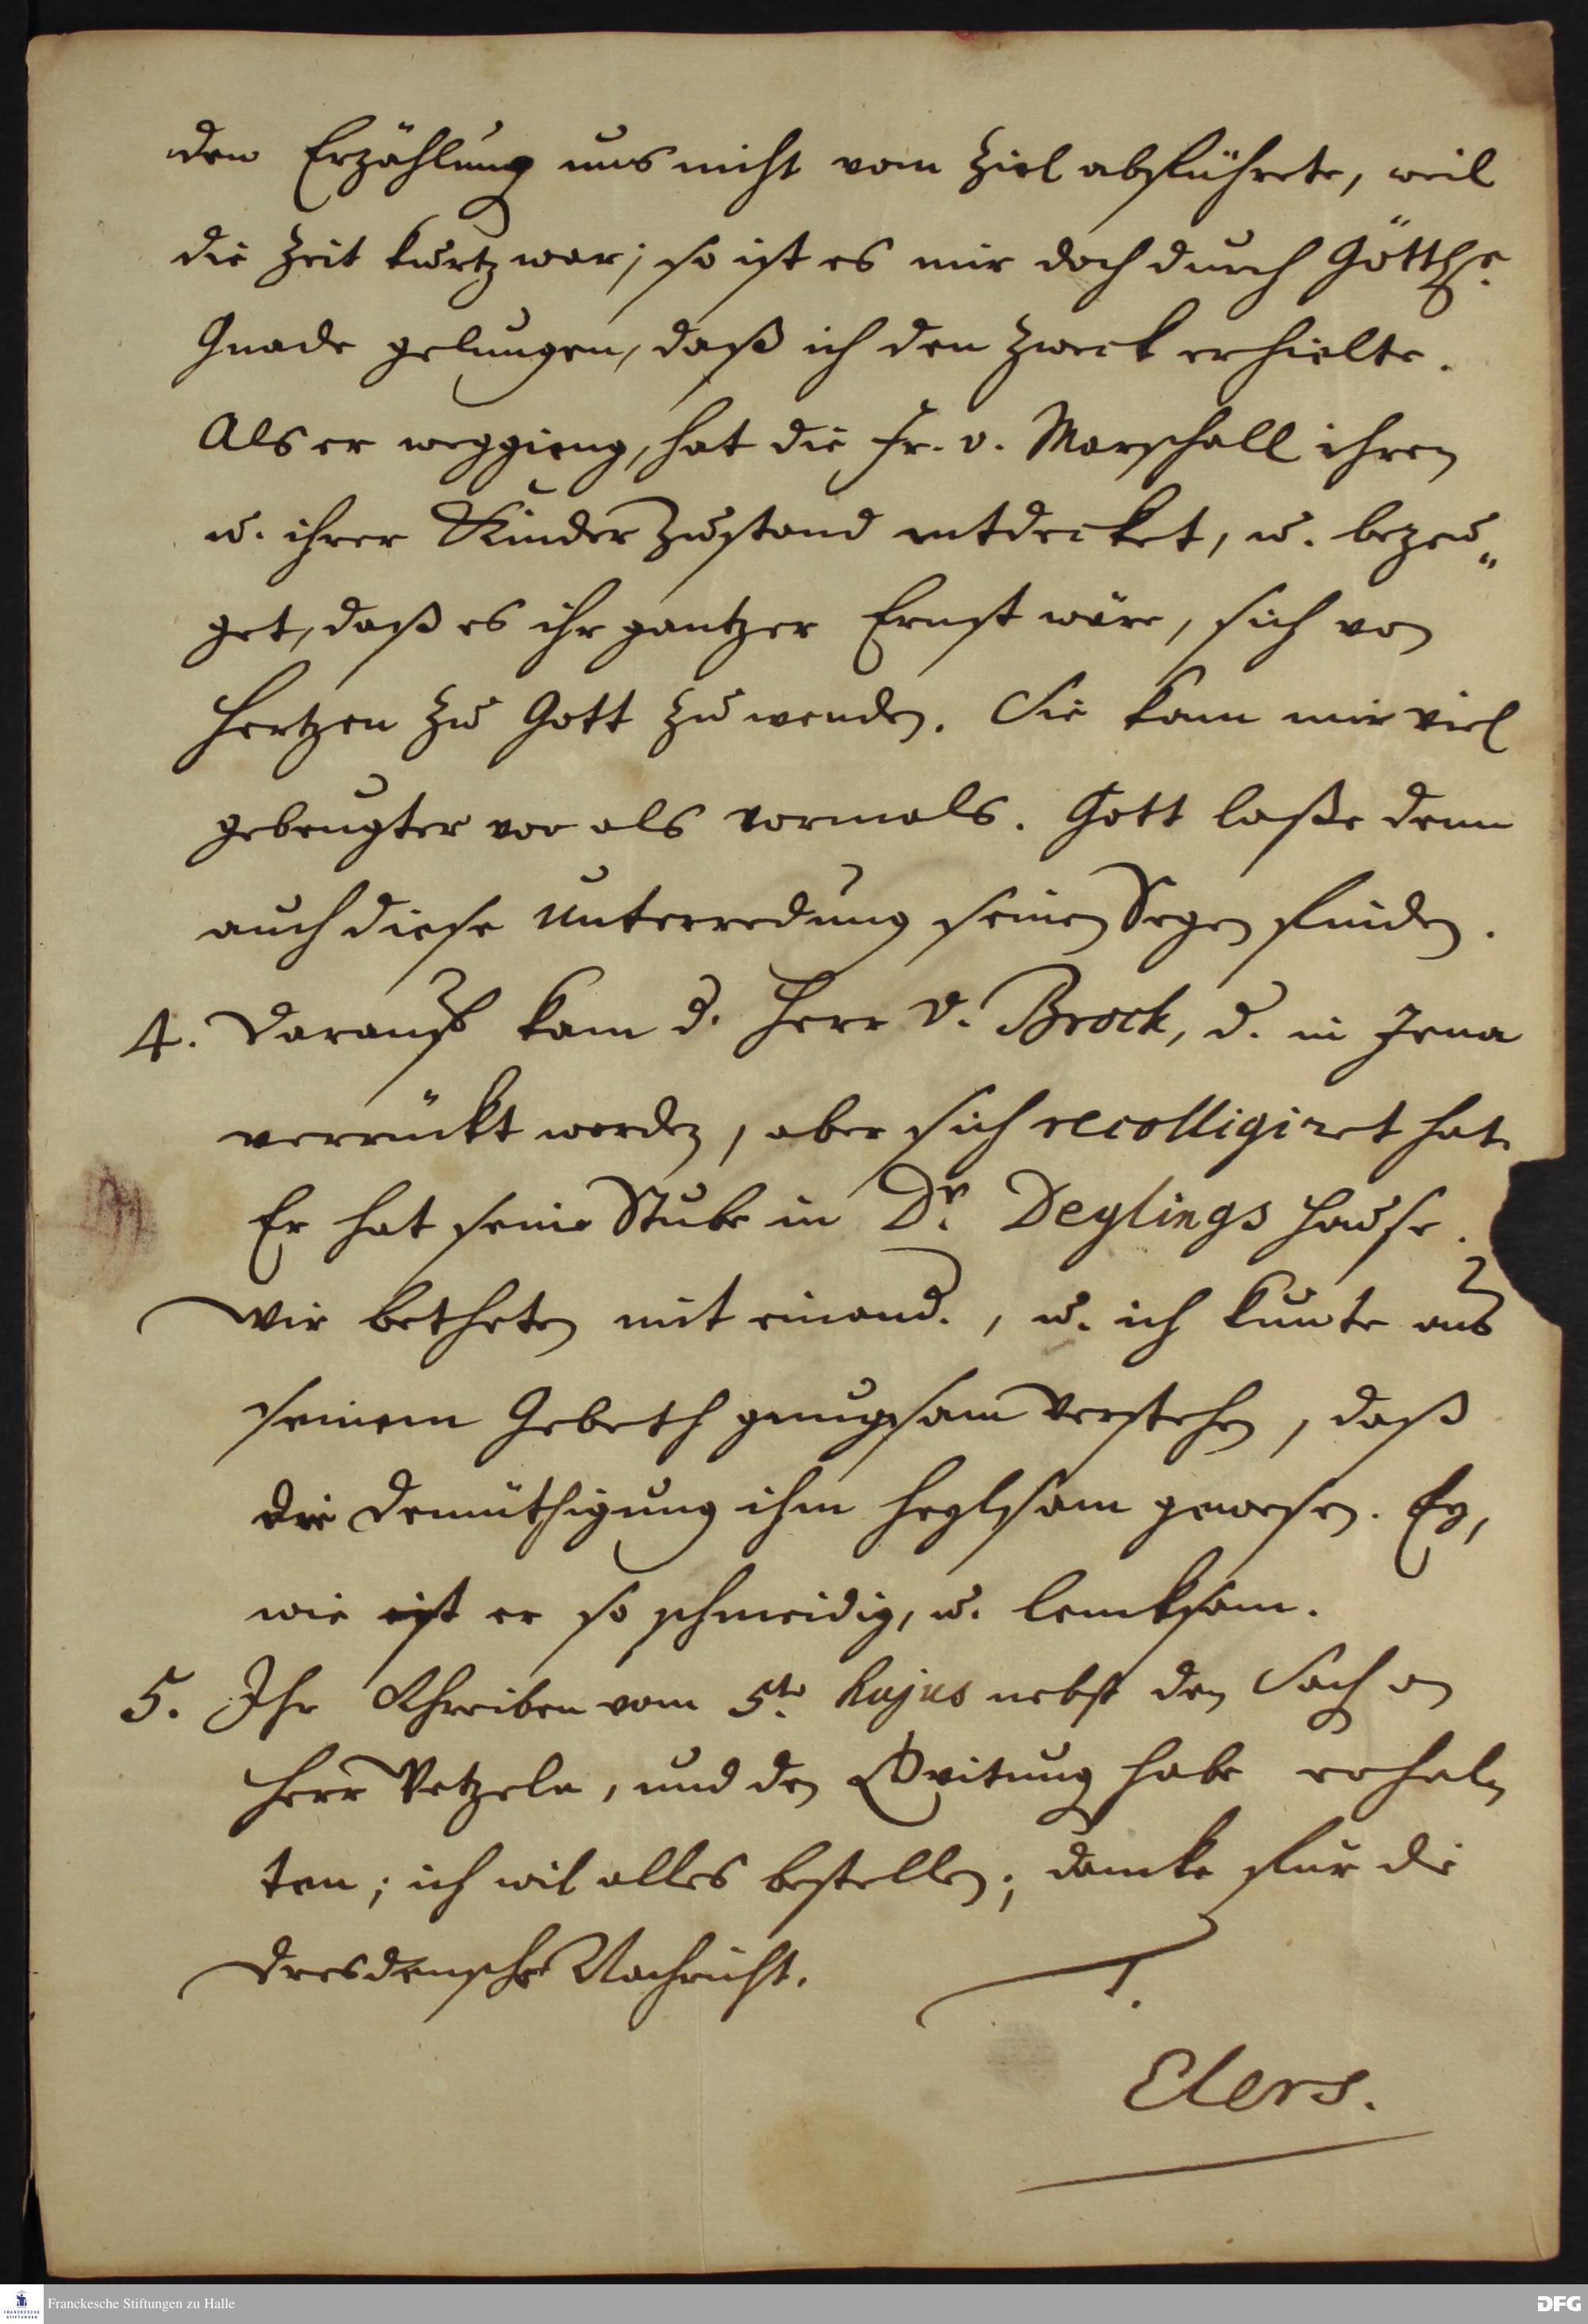 den Erzählung uns nicht vom Ziel abführete, weil
die Zeit kurtz war; so ist es mir doch durch Göttl.
Gnade gelungen, daß ich den Zweck erhielte.
Als er weggieng, hat die Fr. v. Marschall ihren
u. ihrer Kinder Zustand entdecket, u. bezeu„
get, daß es ihr gantzer Ernst wäre, sich von
Hertzen zu Gott zu wenden. Sie kam mir viel
gebeugter vor als vormals. Gott laße denn
auch diese Unterredung seinen Segen finden.
4. Darauf kam d. Herr v. Brock, d. in Jena
verrückt worden, aber sich recolligiret hat.
Er hat seine Stube in Dr. Deylings Hause.
Wir betheten mit einand., u. ich kunte aus
seinem Gebeth gnugsam verstehen, daß
die Demüthigung ihm heylsam gewesen. Ey,
wie ist er so schmeidig, u. lencksam.
5. Ihr Schreiben vom 5te hujus nebst den Sach an
Herr Wetzeln, und den Qvitung habe erhal
ten; ich wil alles bestellen; dancke für die
Dresdensche Nachricht.
T.
Elers.
Franckesche Stiftungen zu Halle
DFG